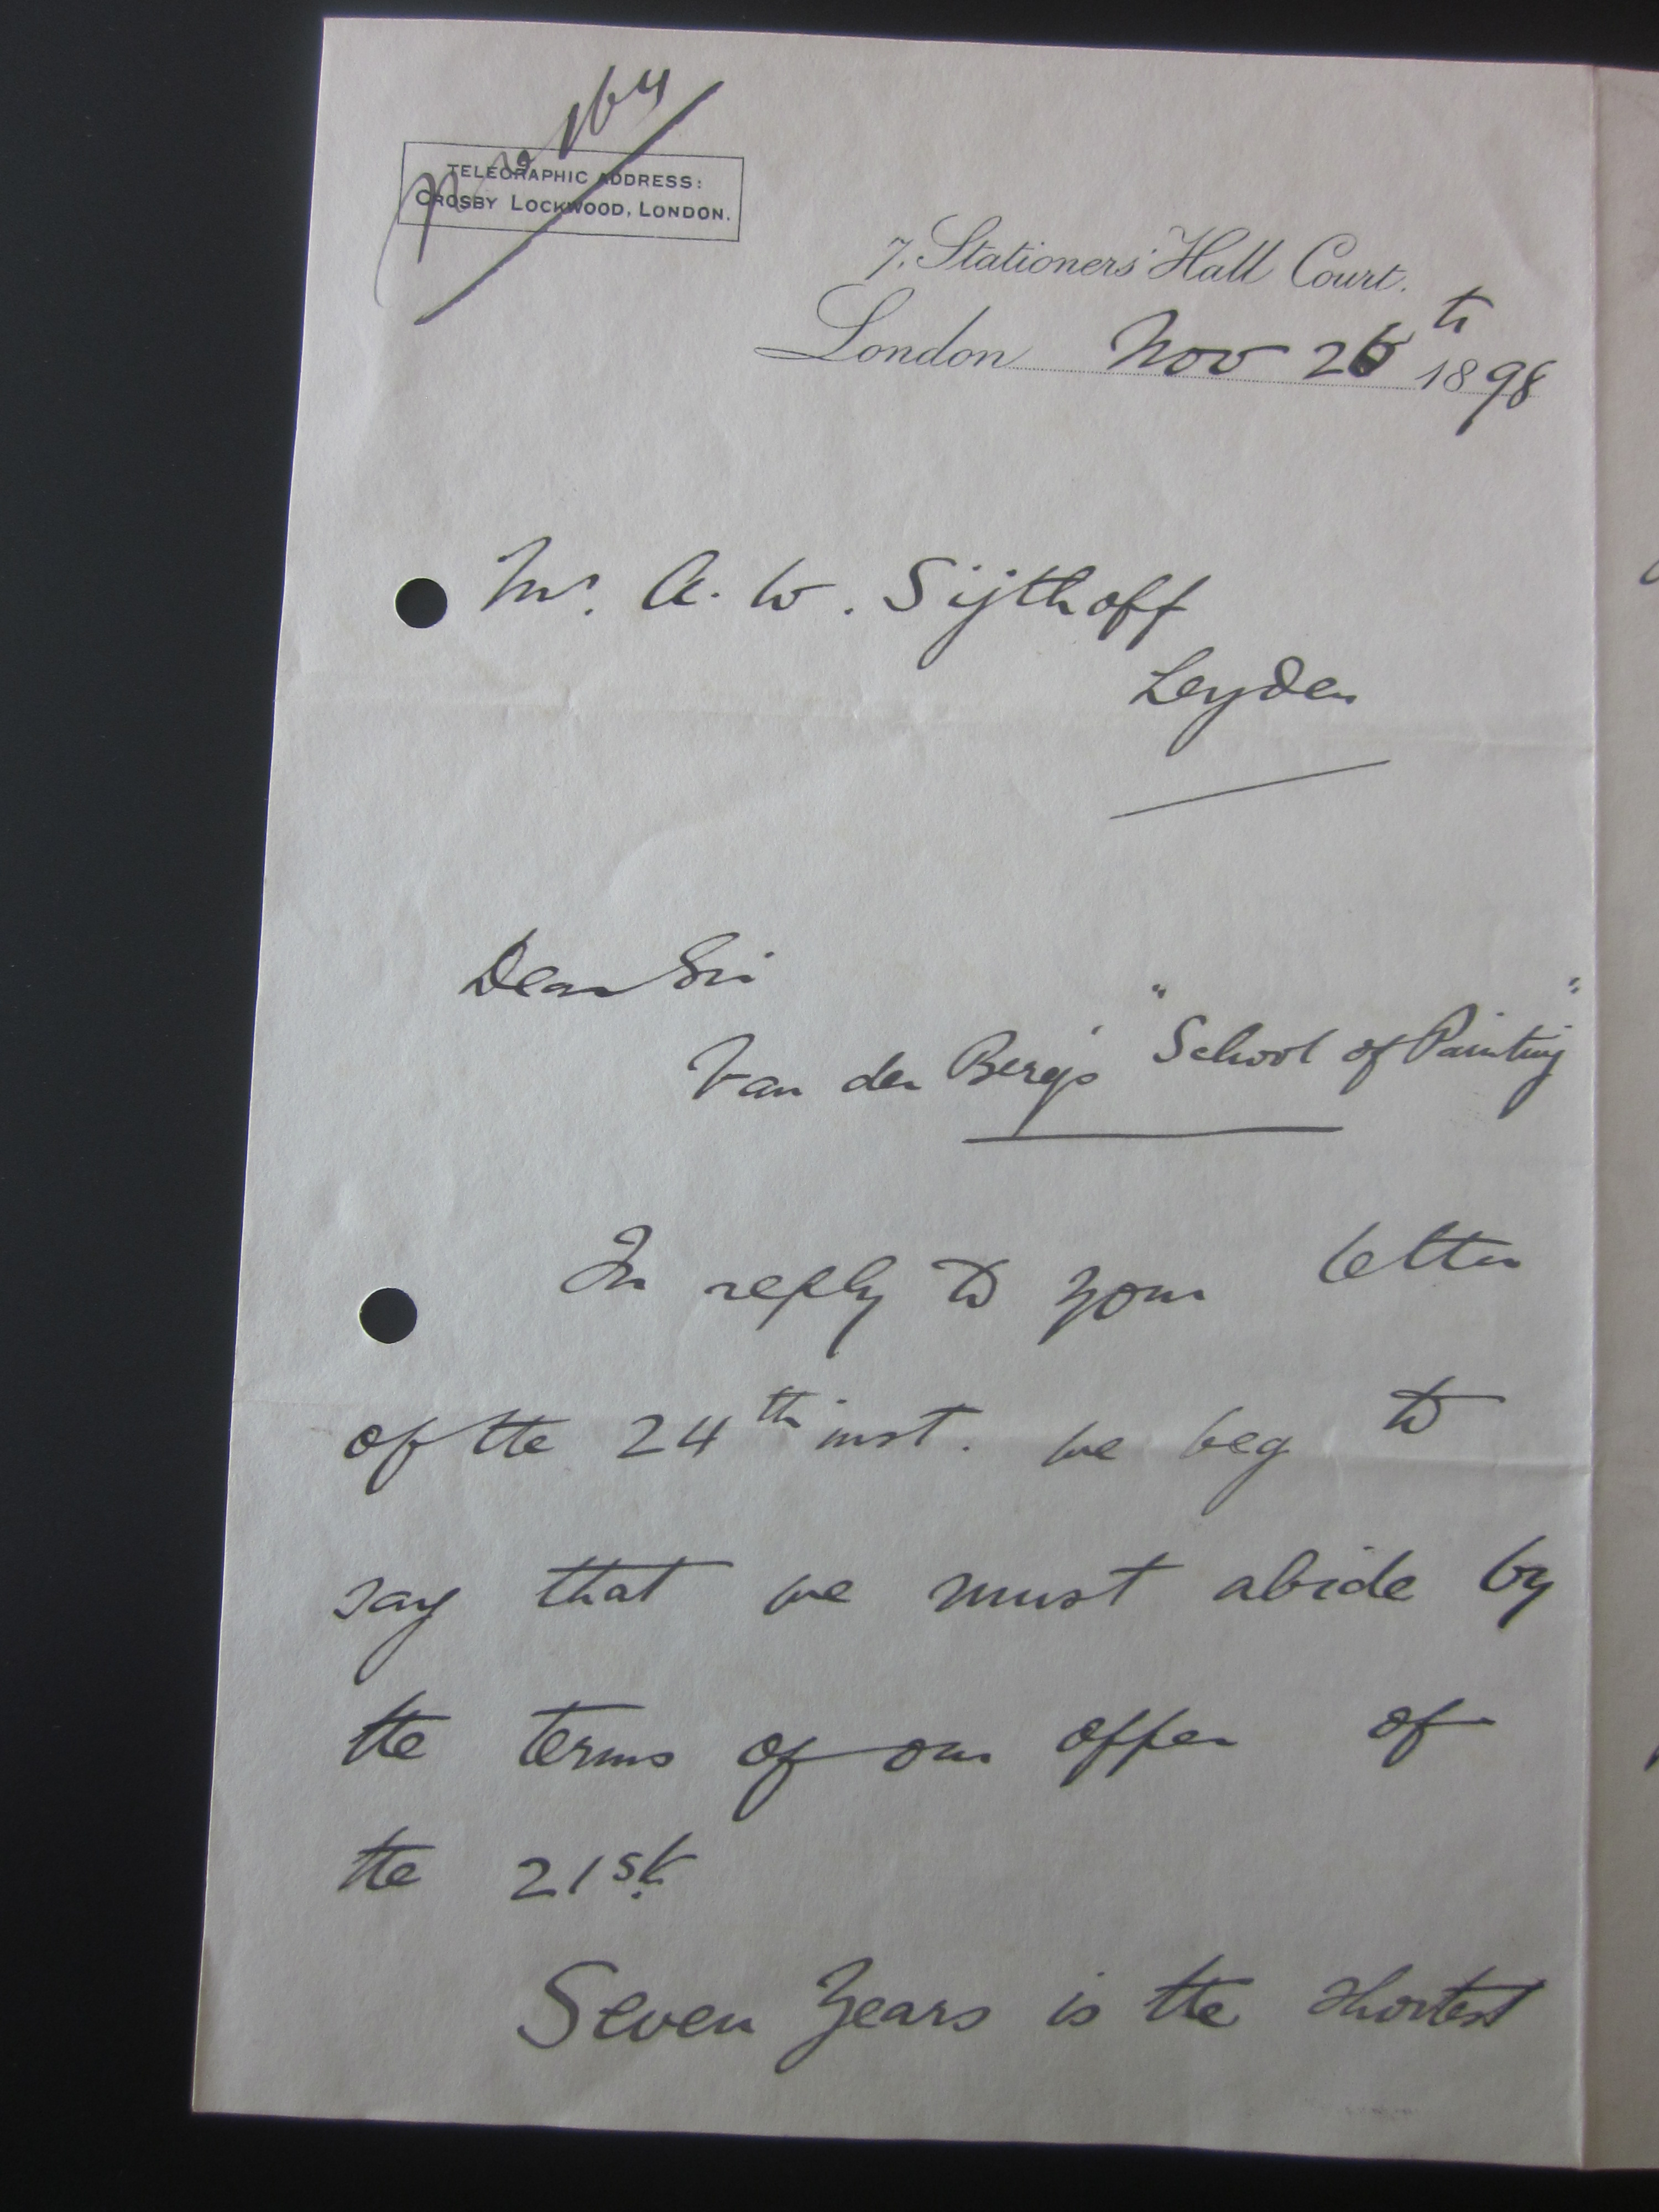 TELEGRAPHIC ADDRESS:
CROSBY LOCKWOOD, LONDON.
7, Stationers' Hall Court.
London Nov 26th 1898
Mr. A. W. Sijthoff
Leyden
Dear Sir
Van der Berg's "School of Painting"
In reply to your letter
of the 24th inst. we beg to
say that we must abide by
the terms of our offer of
the 21st.
Seven Years is the shortest